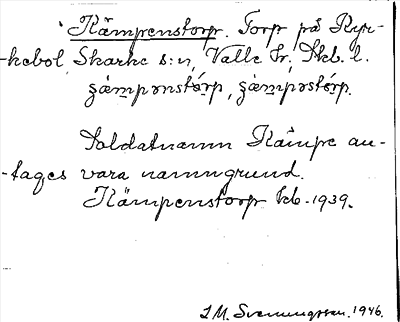 Kämpenstorp. Torp på Kyr-
-kebol, Skarke s:n, Valle hr, Skb. l.
ʒæmpənstórp, ʒæmpəstórp.
Soldatnamn Kämpe an-
-tages vara namngrund.
Kämpenstorp kb. 1939.
I.M. Svenungsson. 1946.